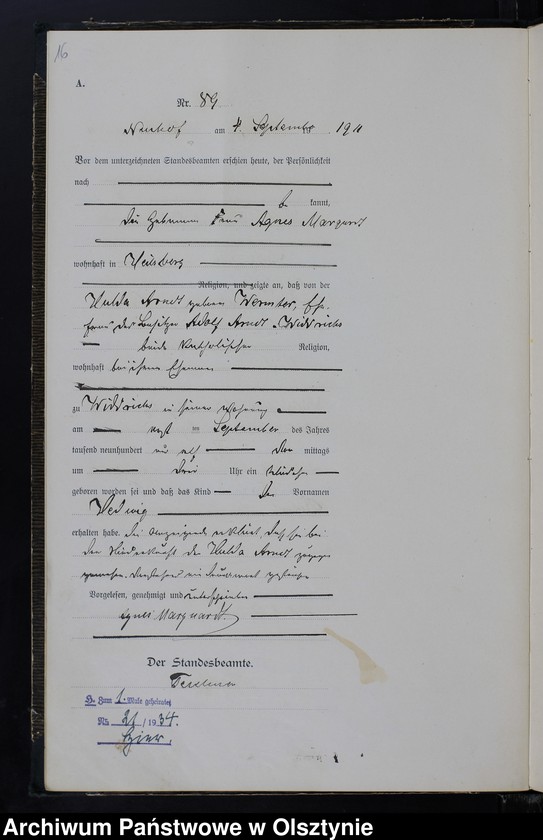 16
A.
Nr. 89
Neuhof am 4. September 1911
Vor dem unterzeichneten Standesbeamten erschien heute, der Persönlichkeit
nach
kannt,
die Hebamme Frau Agnes Marquardt
wohnhaft in Heilsberg
Religion, und zeigte an, daß von der
Hulda Arndt geborene Wermter, Ehe-
frau des Besitzers Adolf Arndt
beide katholischer Religion,
wohnhaft bei ihrem Ehemann
zu in seiner Wohnung
am im September des Jahres
tausend neunhundert und elf mittags
um drei Uhr ein Mädchen
geboren worden sei und daß das Kind den Vornamen
Hedwig
erhalten habe. Die Anzeigende erklärt, daß sie bei
der Niederkunft der Hulda Arndt zugegen
gewesen
Vorgelesen, genehmigt und unterschrieben
Agnes Marquardt.
Der Standesbeamte.
H. Zum 1. Male geheiratet
Nr. 21 / 1934.
Archiwum Państwowe w Olsztynie